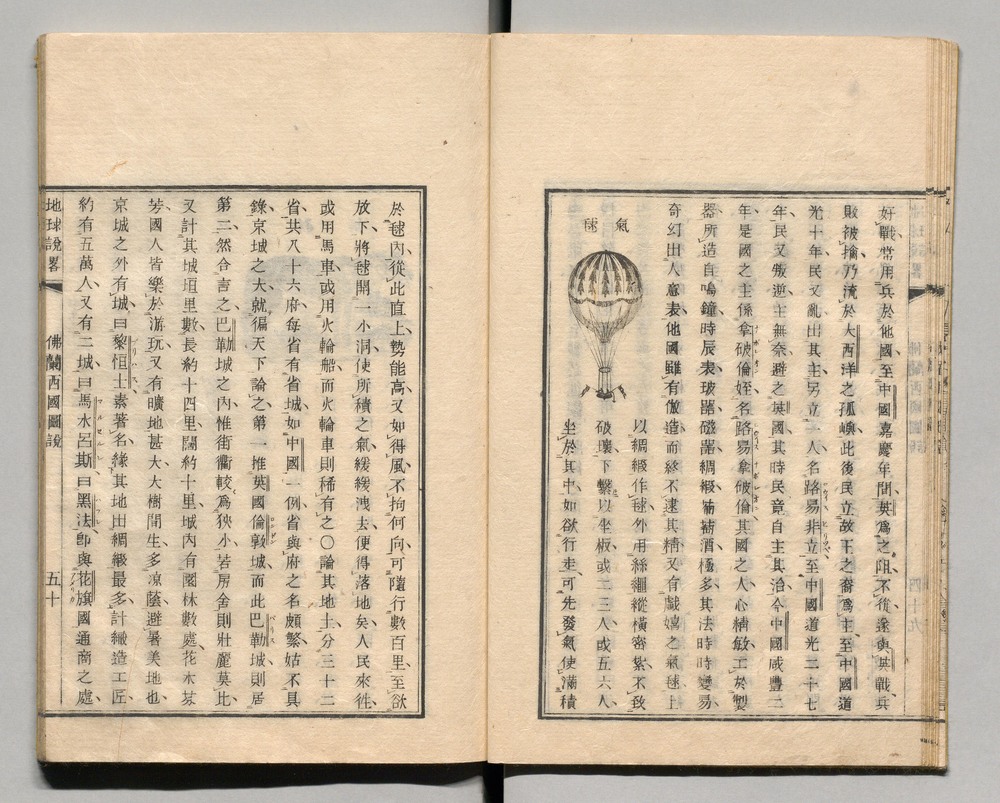 好戰常用兵於他國至中國嘉慶年間英爲之阻不後遂與英戰
敗被擒乃流於大西洋之孤嶼此後民立故王之裔爲主至中國道
光十年民又亂出其主另立一人名路易非立至中國道光二十七
年民又叛逆主無奈避之英國其時民竟自主其治今中國咸豐二
年是國之主係拿破倫姪名路易拿破倫其國之人心精敏工於製
器所造自鳴鐘時辰表玻器磁器綢緞葡萄酒極多其法時時變易
奇幻出人意表他國雖有倣造而終不逮其精又有戲嬉之氣毬上
氣毬
以綢緞作毬外用絲繩縱橫密紮不致
破壞下繫以坐板或二三人或五六人
坐於其中如欲行走可先發氣使滿積
於毬內從此直上勢能高又如得風不拘何向可隨行數百里至欲
放下將毬開一小洞使所積之氣緩緩洩去便得落地矣人民來往
或用馬車或用火輪船而火輪車則稀有之〇論其地土分三十二
省共八十六府每省有省城如中國一例省與府之名頗繁姑不具
錄京城之大就徧天下論之第一推英國倫敦城而此巴勒城則居
第二然合言之巴勒城之內惟街衢較爲狹小若房舍則壯麗莫比
又計其城垣里數長約十四里闊約十里城內有園林數處花木芬
芳國人皆樂於游玩又有曠地甚大大樹間生多凉蔭避暑美地也
京城之外有城曰黎恒士素著名緣其地出綢緞最多計織造工匠
約有五萬人又有二城曰馬水呂斯曰黑法卽與花旗國通商之處
地球說畧
佛蘭西國圖說
五十